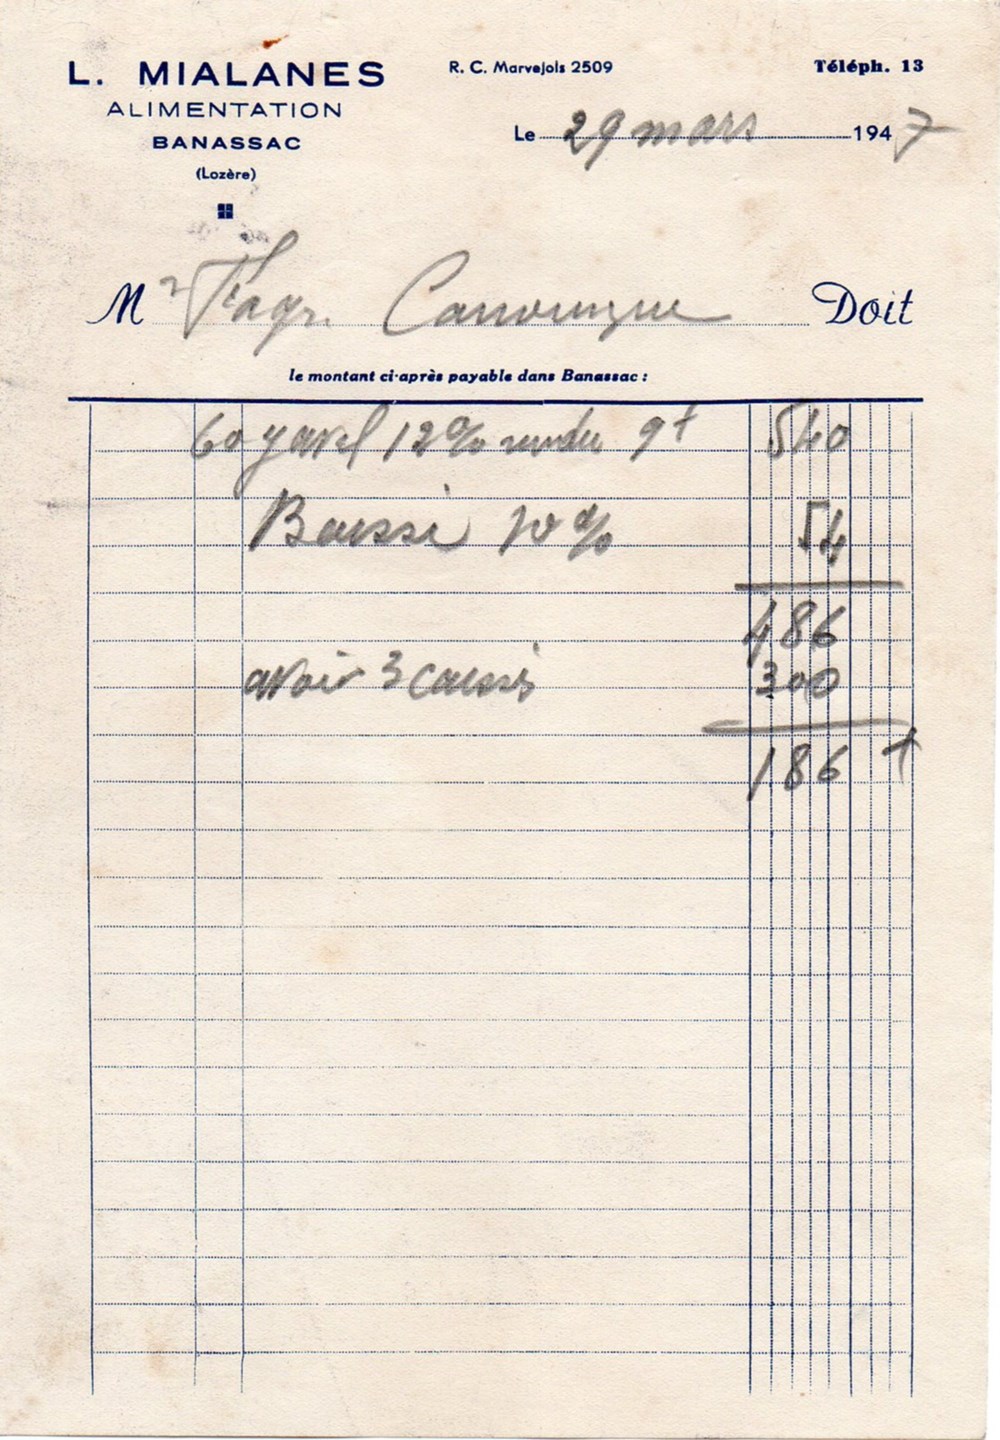 L. MIALANES
ALIMENTATION
BANASSAC
(Lozère)
R. C. Marvejols 2509
Téléph. 13
Le 29 mars 1947
Mr Fages. Doit
le montant ci-après payable dans Banassac :
60 12% 9f 540
Baisse 10% 54
486
avoir 3 caisses 300
186 f